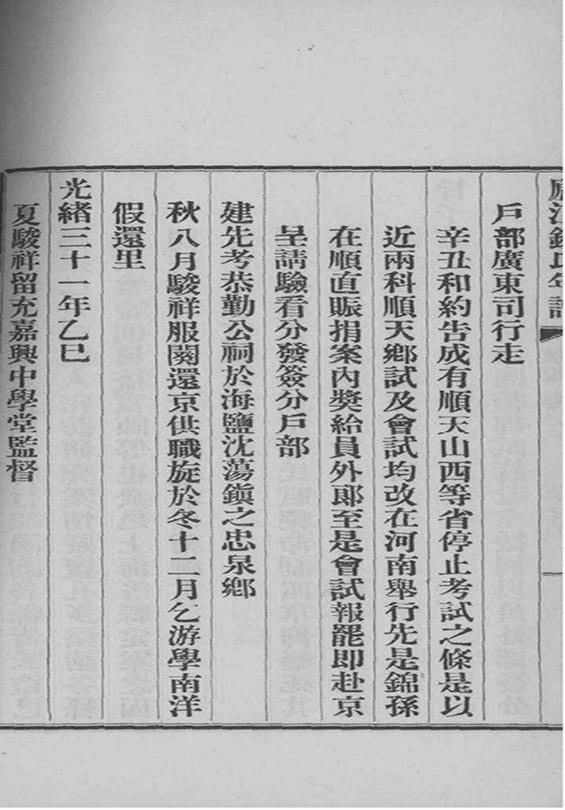 戶部廣東司行走
辛丑和約告成有順天山西等省停止考試之條是以
近兩科順天鄉試及會試均改在河南舉行先是錦孫
在順直賑捐案內獎給員外郎至是會試報罷即赴京
呈請驗看分發簽分戶部
建先考恭勤公祠於海鹽沈蕩鎭之忠泉鄉
秋八月駿祥服闋還京供職旋於冬十二月乞游學南洋
假還里
光緒三十一年乙巳
夏駿祥留充嘉興中學堂監督